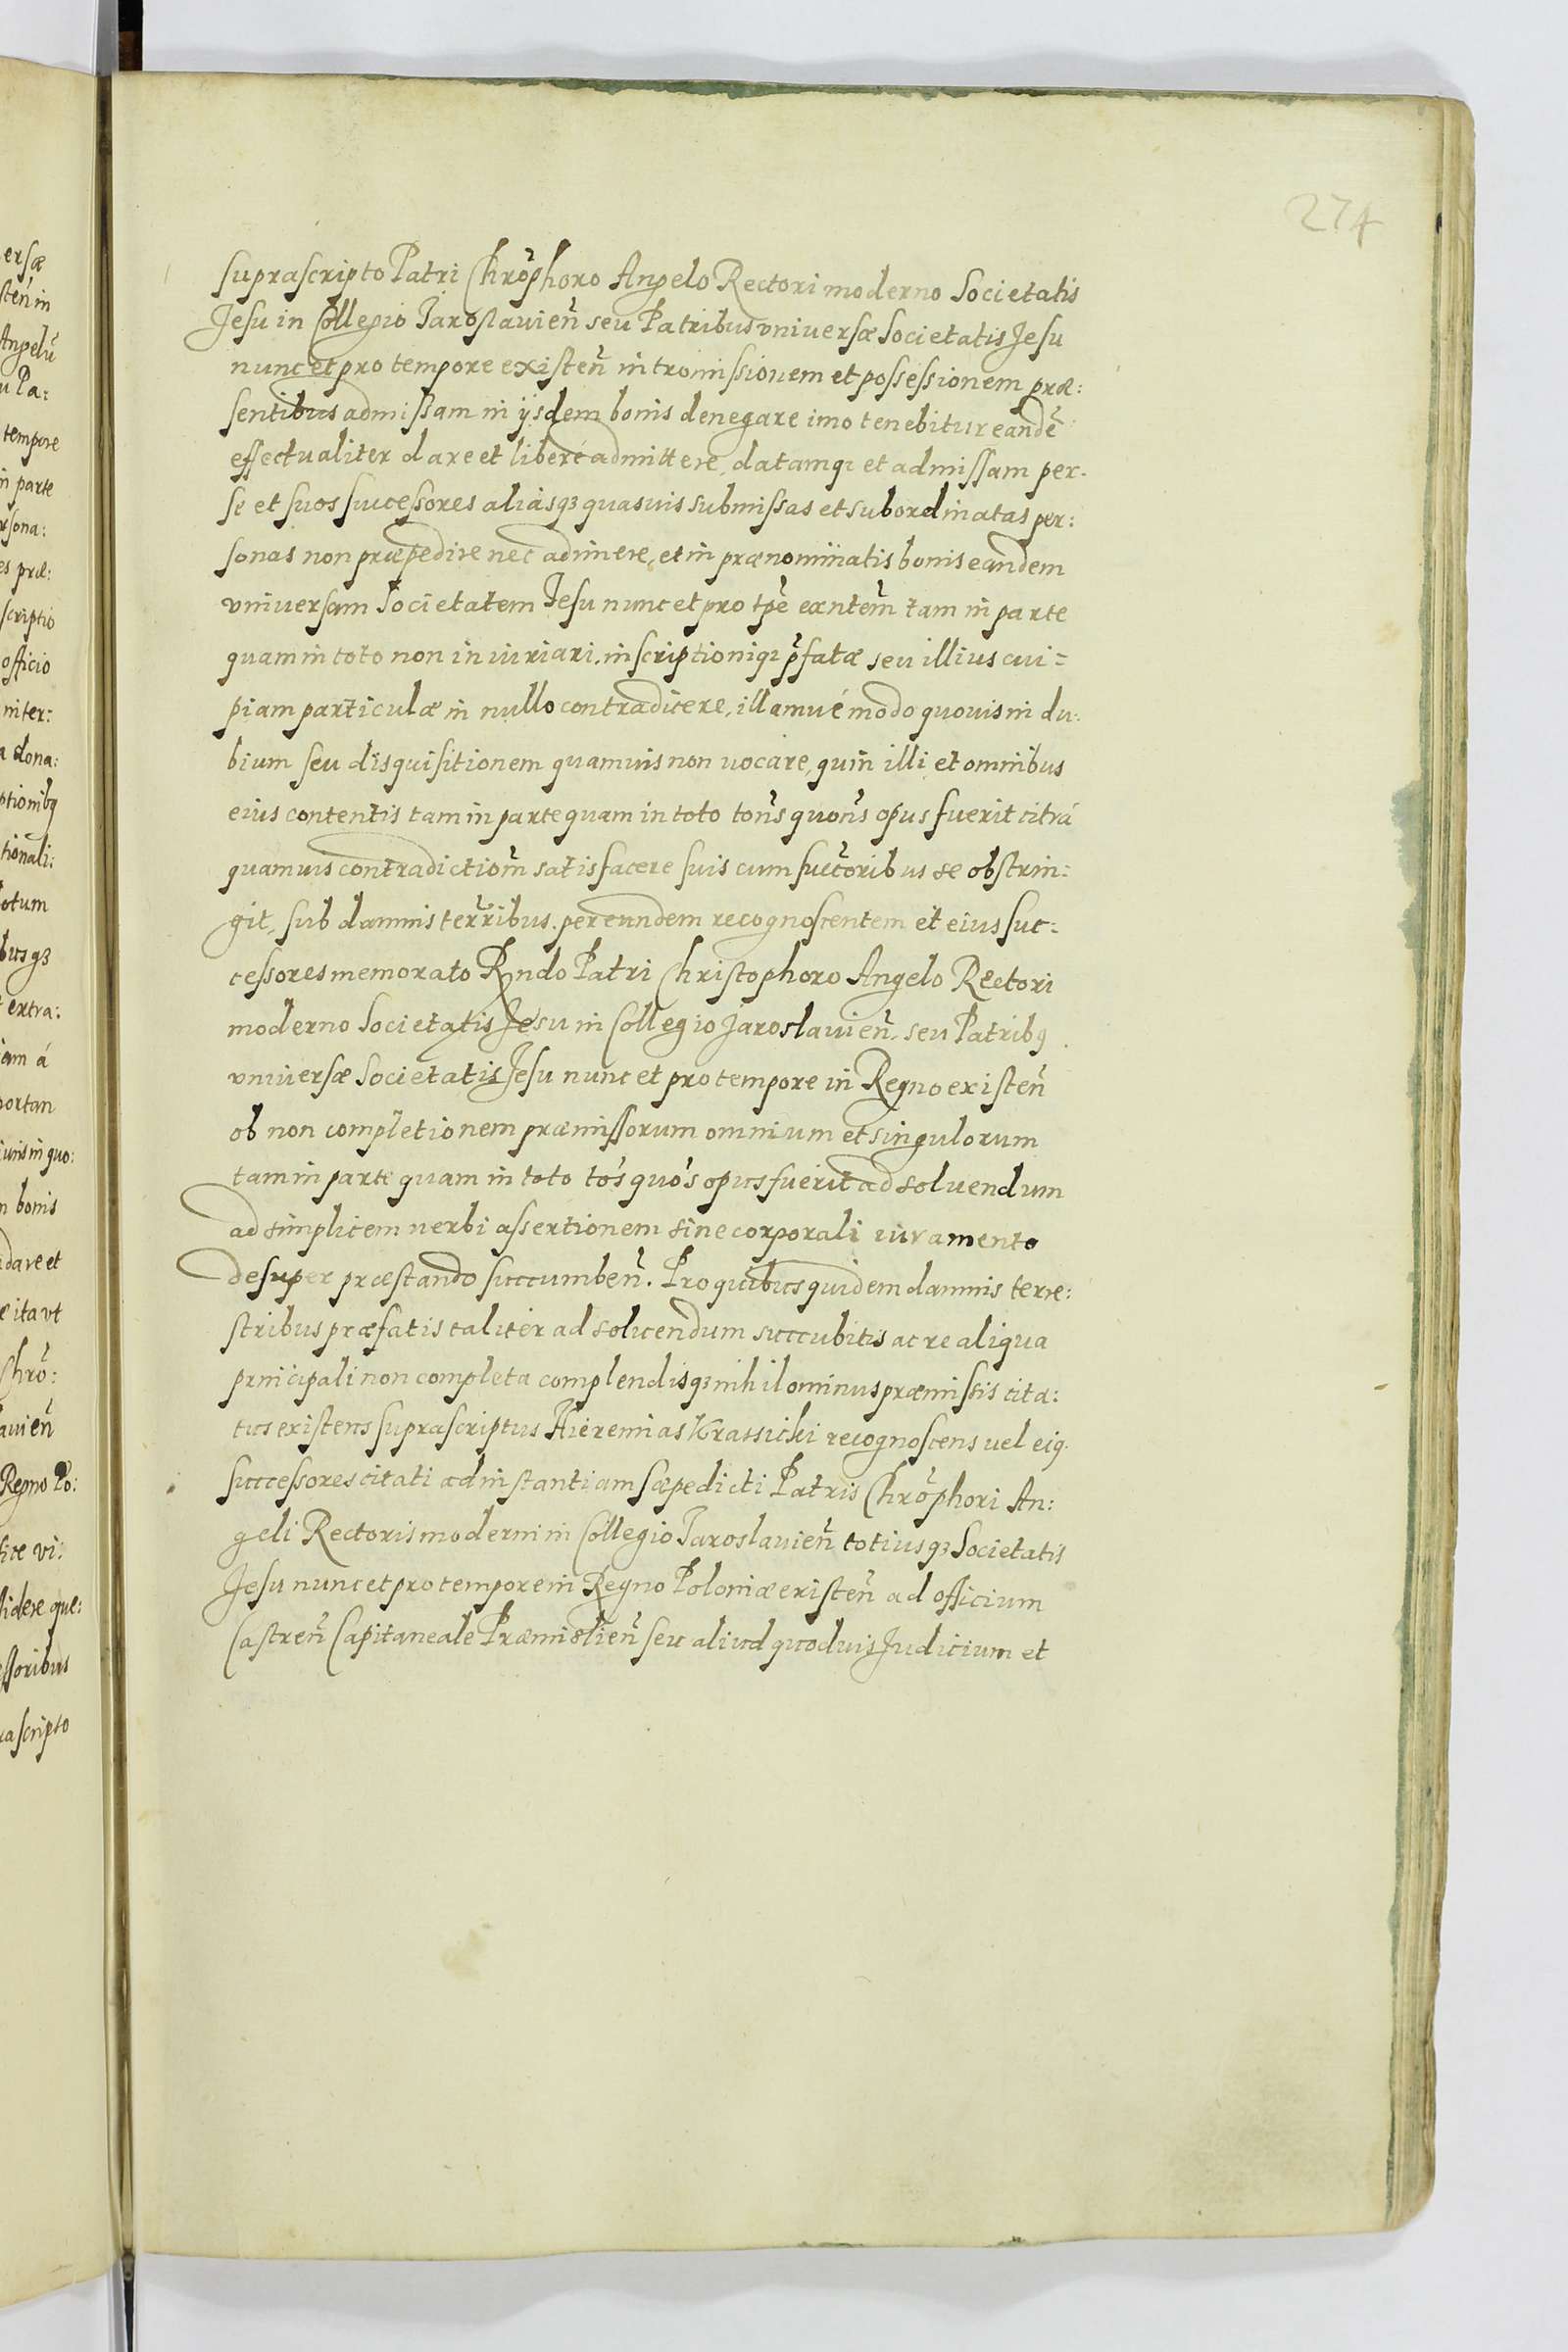 274
suprascripto Patri Chrõphoro Angelo Rectori moderno Societatis
Jesu in Collegio Jaroslauień seu Patribus vniuersæ Societatis Jesu
nunc et pro tempore existeñ intromissionem et possessionem præ:
sentibus admissam in ijsdem bonis denegare imo tenebitur eandẽ
effectualiter dare et liberé admittere, datamq; et admissam per
se et suos successores aliasq3 quasuis submissas et subordinatas per:
sonas non præpedire nec adimere, et in prænominatis bonis eandem
vniuersam Societatem Jesu nunc et pro tp̃e exñtem tam in parte
quam in toto non iniuriari, inscriptioniq; p̃fatæ seu illius cui=
piam particulæ in nullo contradicere, illamué modo quouis in du:
bium seu disquisitionem quamuis non uocare, quin illi et omnibus
eius contentis tam in parte quam in toto toñs quoñs opus fuerit citrá
quamuis contradictiom̃ satisfacere suis cum succ̃oribus se obstrin:
git, sub damnis ter̃ribus per eundem recognoscentem et eius suc:
cessores memorato Rndo Patri Christophoro Angelo Rectori
moderno Societatis Jesu in Collegio Jaroslauień. seu Patribꝰ
vniuersæ Societatis Jesu nunc et pro tempore in Regno existeñ
ob non completionem præmissorum omnium et singulorum
tam in parte quam in toto tõs quõs opus fuerit ad soluendum
ad simplicem uerbi assertionem sine corporali iuramento
desuper præstando succumbeñ. Pro quibus quidem damnis terre:
stribus præfatis taliter ad soluendum succubitis ac re aliqua
principali non completa complendisq3 nihilominus præmissis cita:
tus existens suprascriptus Hieremias Krassicki recognoscens uel eiꝰ
successores citati ad instantiam sæpedicti Patris Chrõphori An:
geli Rectoris moderni in Collegio Jaroslauień totiusq3 Societatis
Jesu nunc et pro tempore in Regno Poloniæ existeñ ad officium
Castreñ Capitaneale Præmislień seu aliud quoduis Judicium et